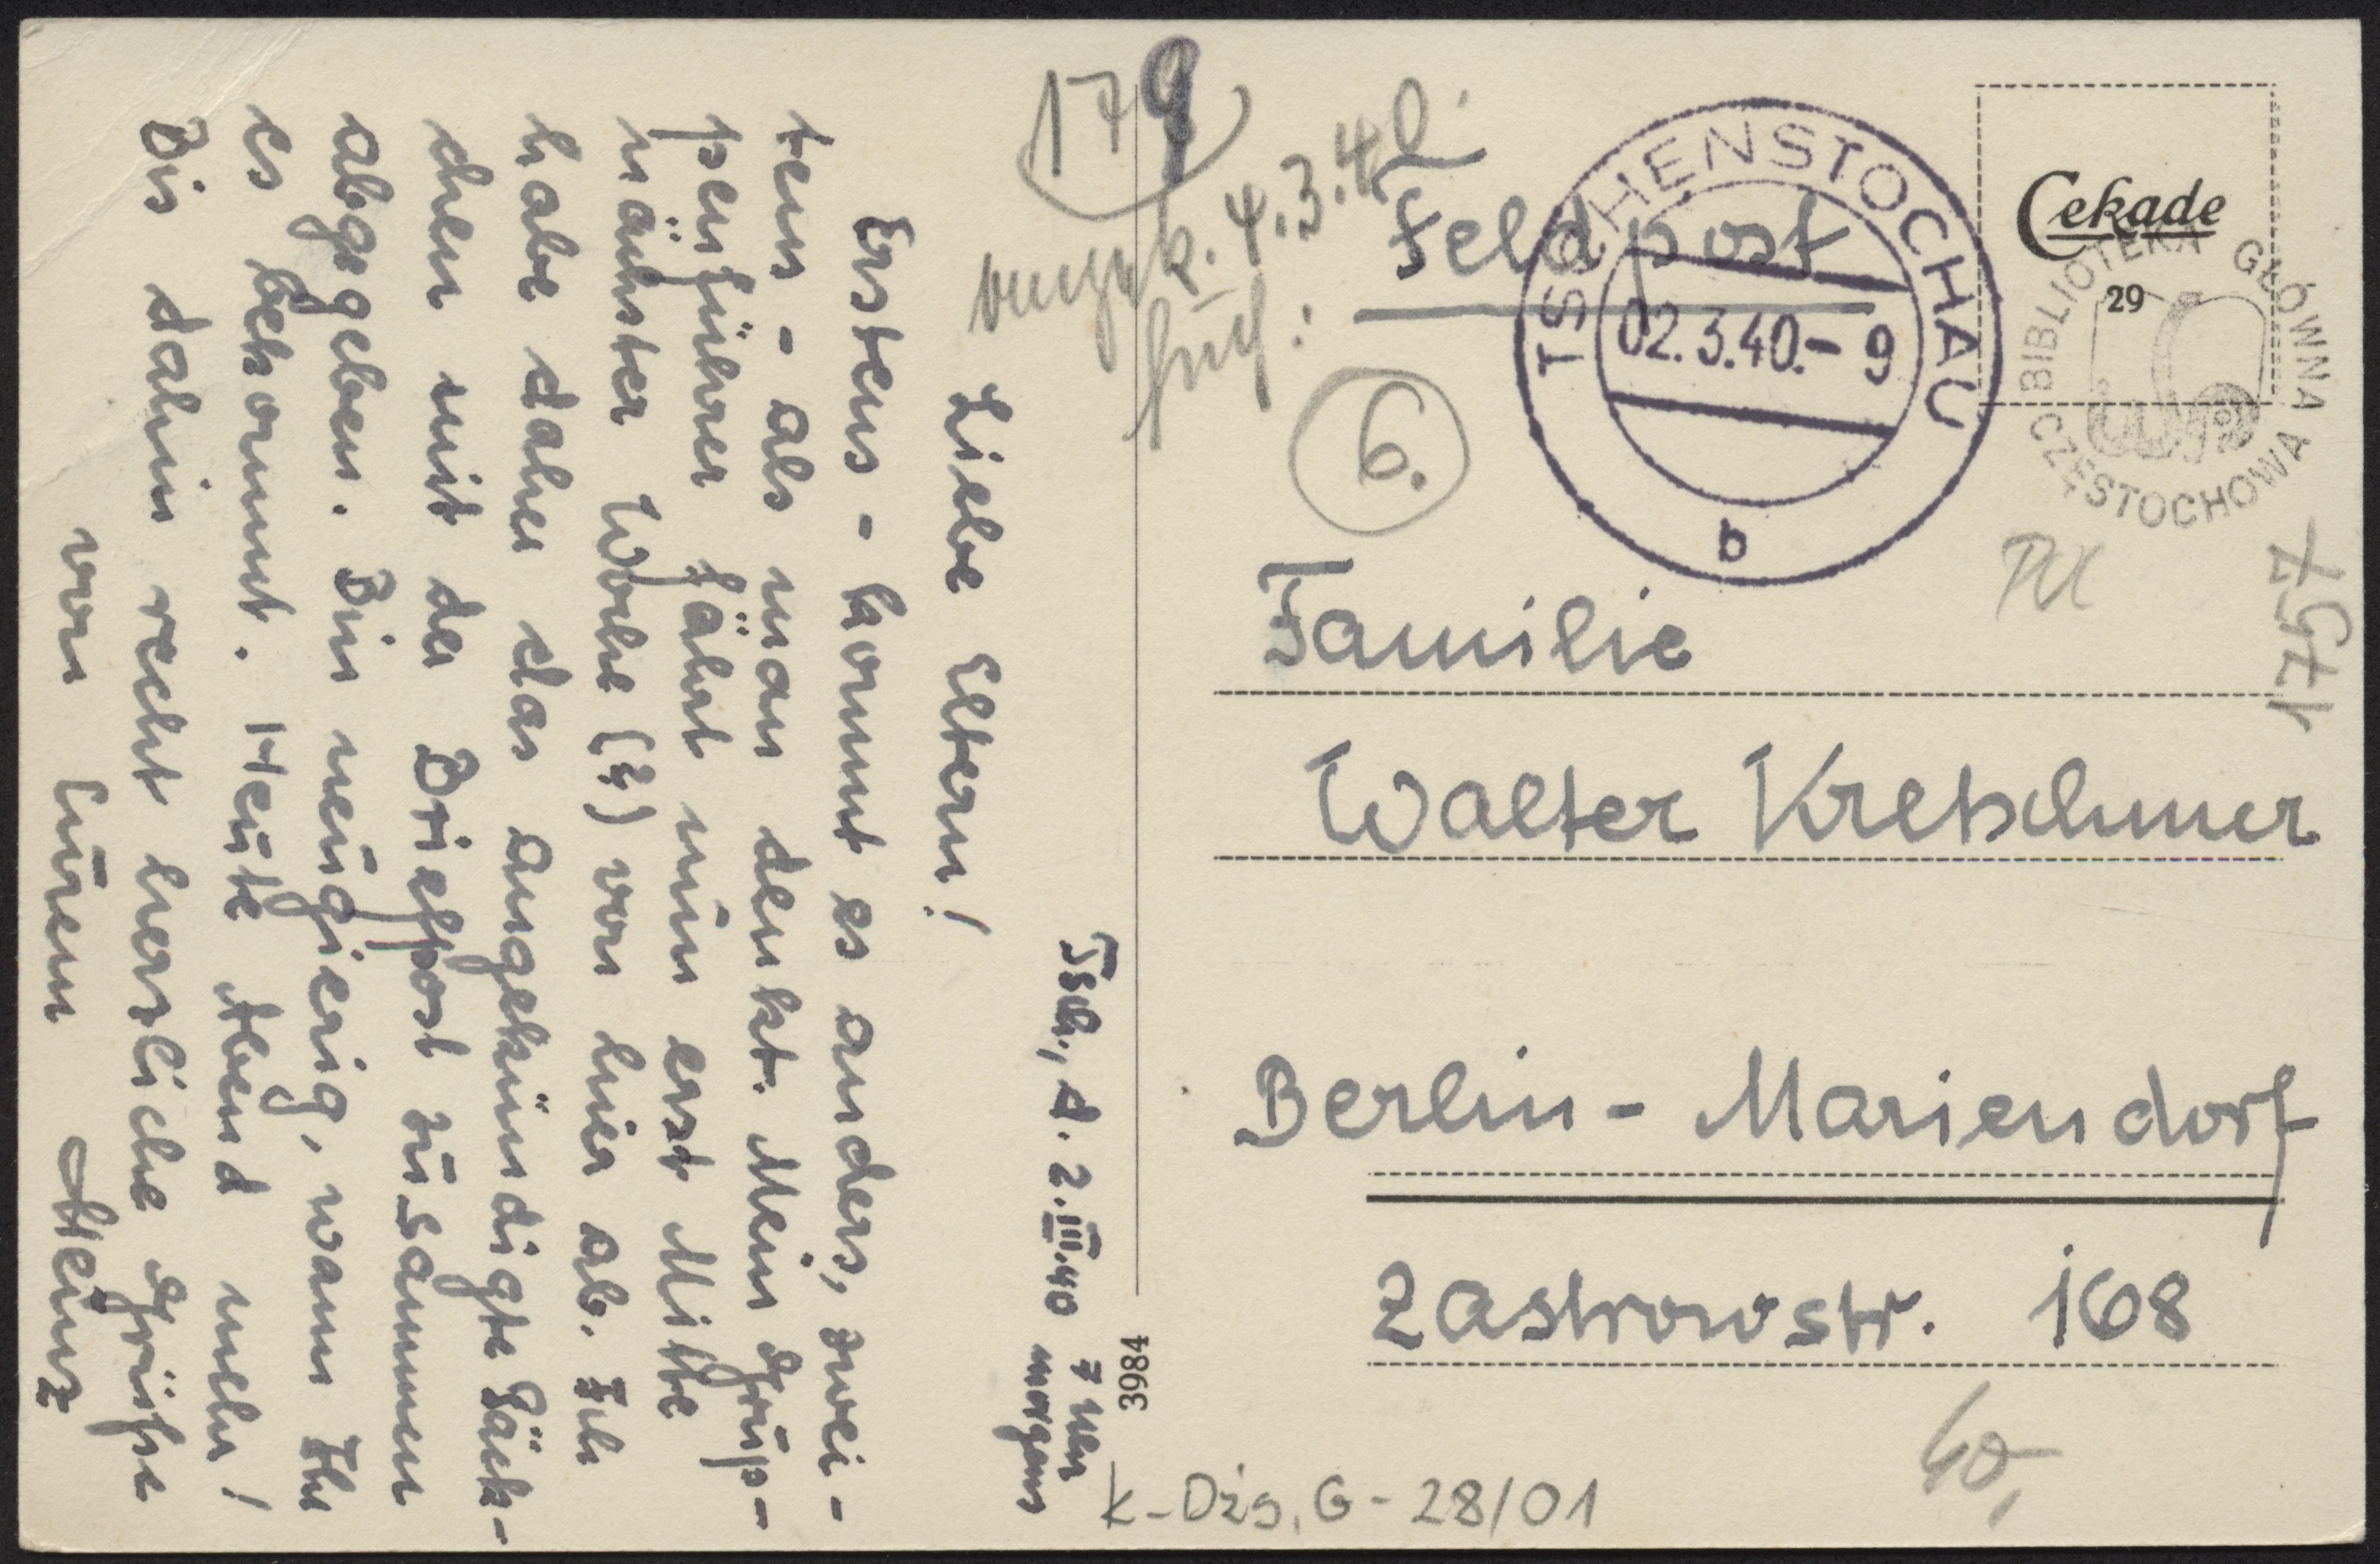 Tsch., d. 2.III.40
7 Uhr
morgens
Liebe Eltern!
Erstens - kommt es anders, zwei-
tens - als man denkt. Mein Grup-
penführer fährt nun erst Mitte
nächster Woche (?) von hier ab. Ich
habe daher das angekündigte Päck-
chen mit der Briefpost zusammen
abgegeben. Bin neugierig, wann Ihr
es bekommt. Heute Abend mehr!
Bis dahin recht herzliche Grüße
von Eurem Heinz
179
4.3.40.
früh:
Feldpost
6.
TSCHENSTOCHAU
02.3.40.- 9
b
Cekade
29
BIBLIOTEKA GŁÓWNA
CZĘSTOCHOWA
1757
Familie
Walter Kretschmer
Berlin - Mariendorf
Zastrowstr. 168
3984
K-Dżs, G - 28/01
40,-